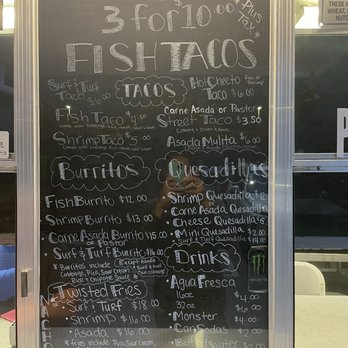 3 for 10.00 Plus Tax
FISH TACOS
TACOS
Surf & Turf Taco $6.00
Hot Cheeto Taco $6.00
Fish or Shrimp
Fish Taco $4.50
Carne Asada or Pastor
Street Taco $3.50
Shrimp Taco $5.00
Asada Mulita $6.00
Burritos
Quesadillas
Fish Burrito $12.00
Shrimp Quesadilla
Shrimp Burrito $13.00
Carne Asada Quesadilla
Carne Asada Burrito $15.00
or Pastor
Cheese Quesadilla
Surf & Turf Burrito
Mini Quesadilla
Surf & Turf Quesadilla
* Burritos include
Cabbage, Pico, Sour Cream
Rice & Chipotle Sauce *
Drinks
Twisted Fries
Aqua Fresca
Surf & Turf $18.00
16oz $4.00
32oz $6.00
Shrimp $16.00
Monster $4.00
Asada $16
Can Sodas $2.00
* fries include Pico, Sour Cream
Bottled Water
NACHO